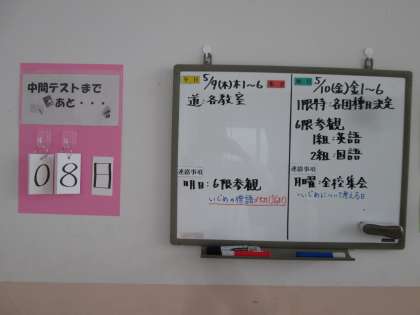 中間テストまで
あと・・・
08日
5/9(木)木1~6
道:各教室
連絡事項
明日:6限参観
5/10(金)金1~6
1限特:各団種目決定
6限参観
1組:英語
2組:国語
連絡事項
月曜:全校集会
いじめについて考える日